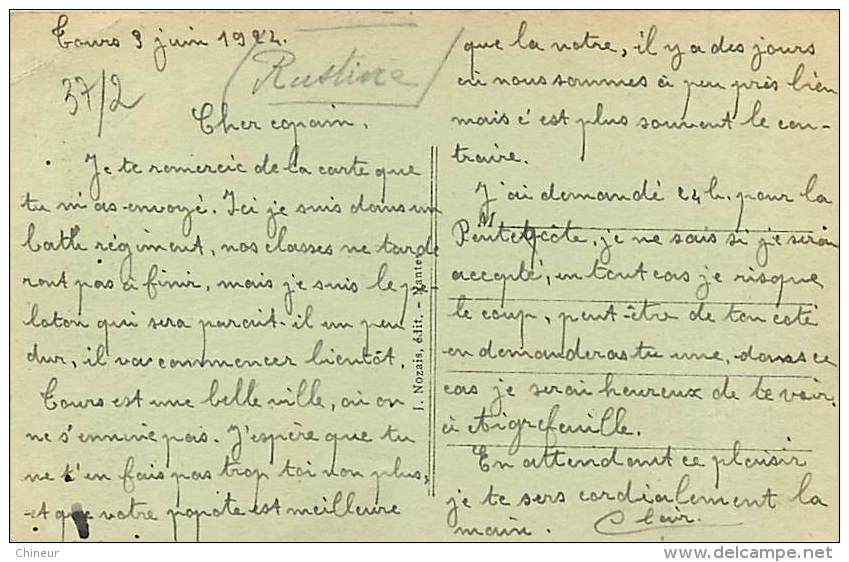 Tours 3 juin 1922.
37/2
(Rustine)
Cher copain,
Je te remercie de la carte que
tu m'as envoyé. Ici je suis dans un
batt régiment, nos classes ne tarde
ront pas à finir, mais je suis le pe-
loton qui sera parait-il un peu
dur, il va commencer bientôt.
Tours est une belle ville, où on
ne s'ennuie pas. J'espère que tu
ne t'en fais pas trop toi non plus,
et que votre popote est meilleure
J. Nozais, édit. - Nantes
que la notre, il y a des jours
où nous sommes à peu près bien
mais c'est plus souvent le con-
traire.
J'ai demandé 24 h. pour la
Pentecôte, je ne sais si je serai
accepté, en tout cas je risque
le coup, peut-être de ton coté
en demanderas tu une, dans ce
cas je serai heureux de te voir
à Aigrefeuille.
En attendant ce plaisir
je te sers cordialement la
main. Clair.
Chineur
http://www.delcampe.net